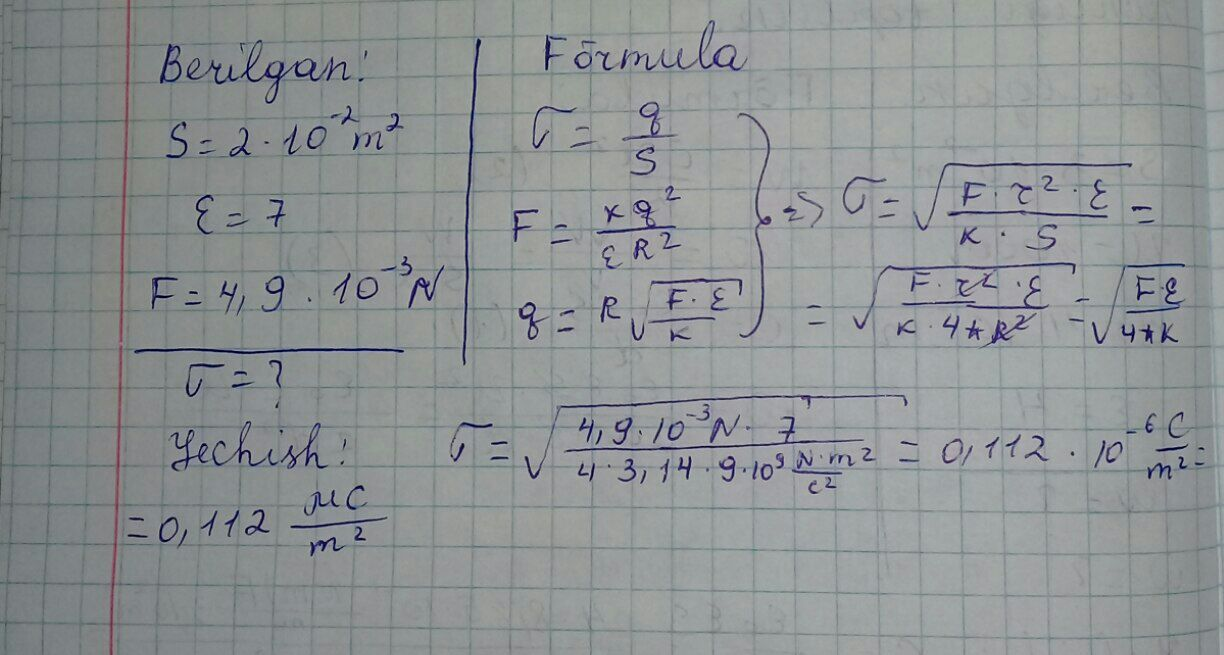 Berilgan:
S = 2 · 10⁻² m²
ε = 7
F = 4,9 · 10⁻³ N
σ = ?
Formula
σ = q/S
F = kq²/εR²
q = R√(F · ε/k)
=> σ = √(F · r² · ε/k · S) =
= √(F · r² · ε/k · 4πR²) = √(F·ε/4πk)
Yechish: σ = √(4,9·10⁻³N · 7/4·3,14·9·10⁹ N·m²/c²) = 0,112 · 10⁻⁶ C/m² =
= 0,112 μC/m²